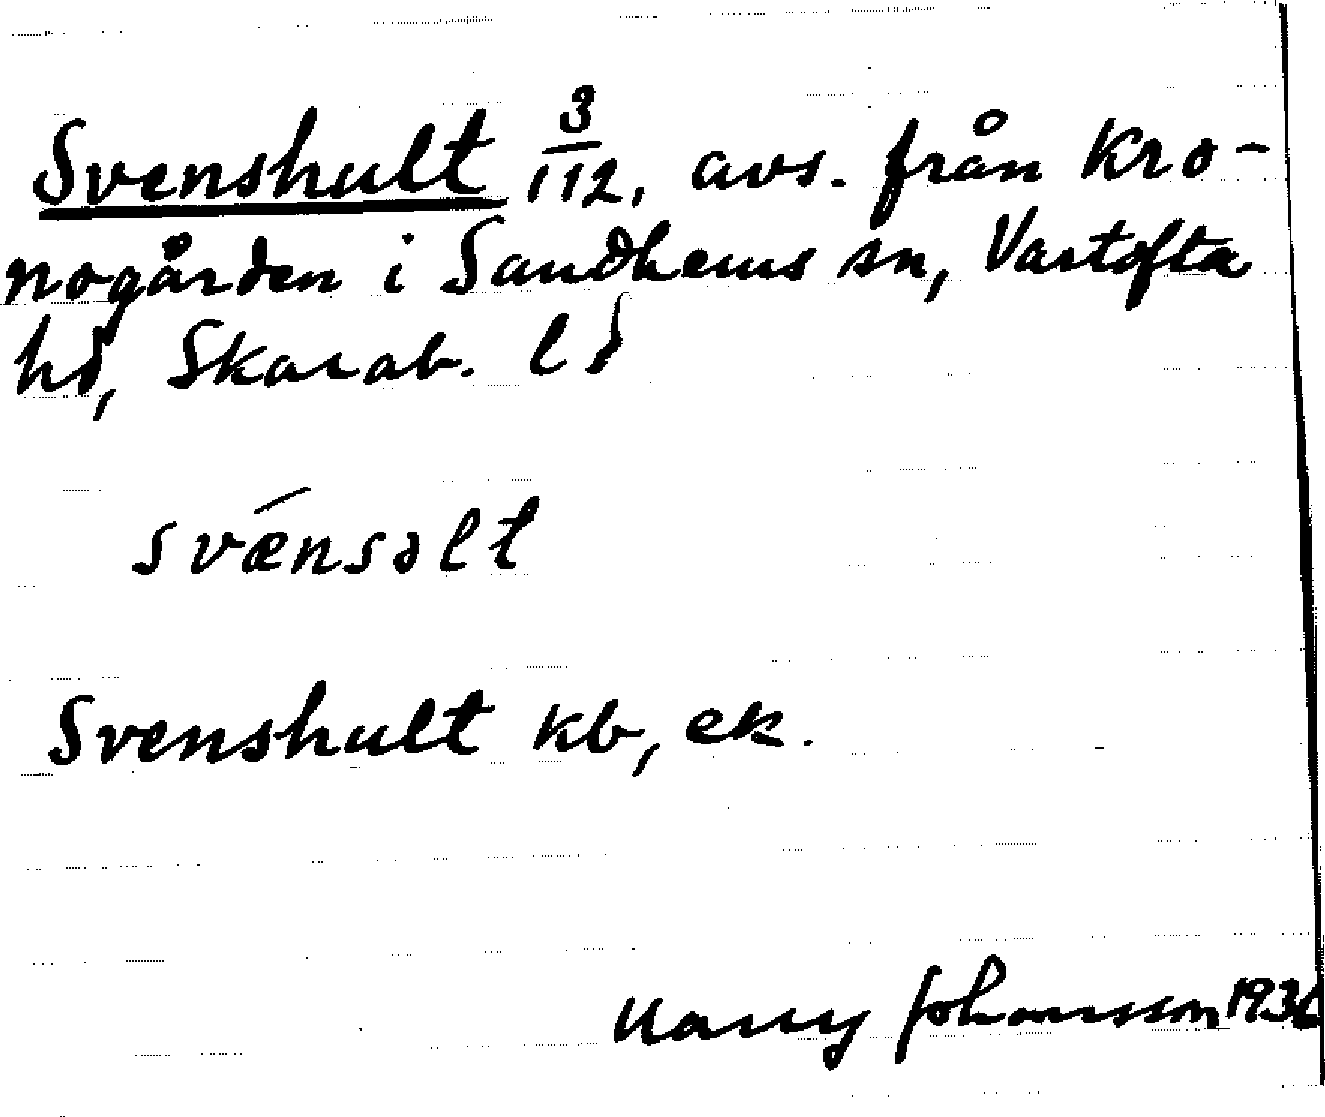 Svenshult 3/112, avs. från Kro-
nogården i Sandhems sn, Vartofta
hd, Skarab. ld
svænsålt
Svenshult kb, ek.
Harry Johansson